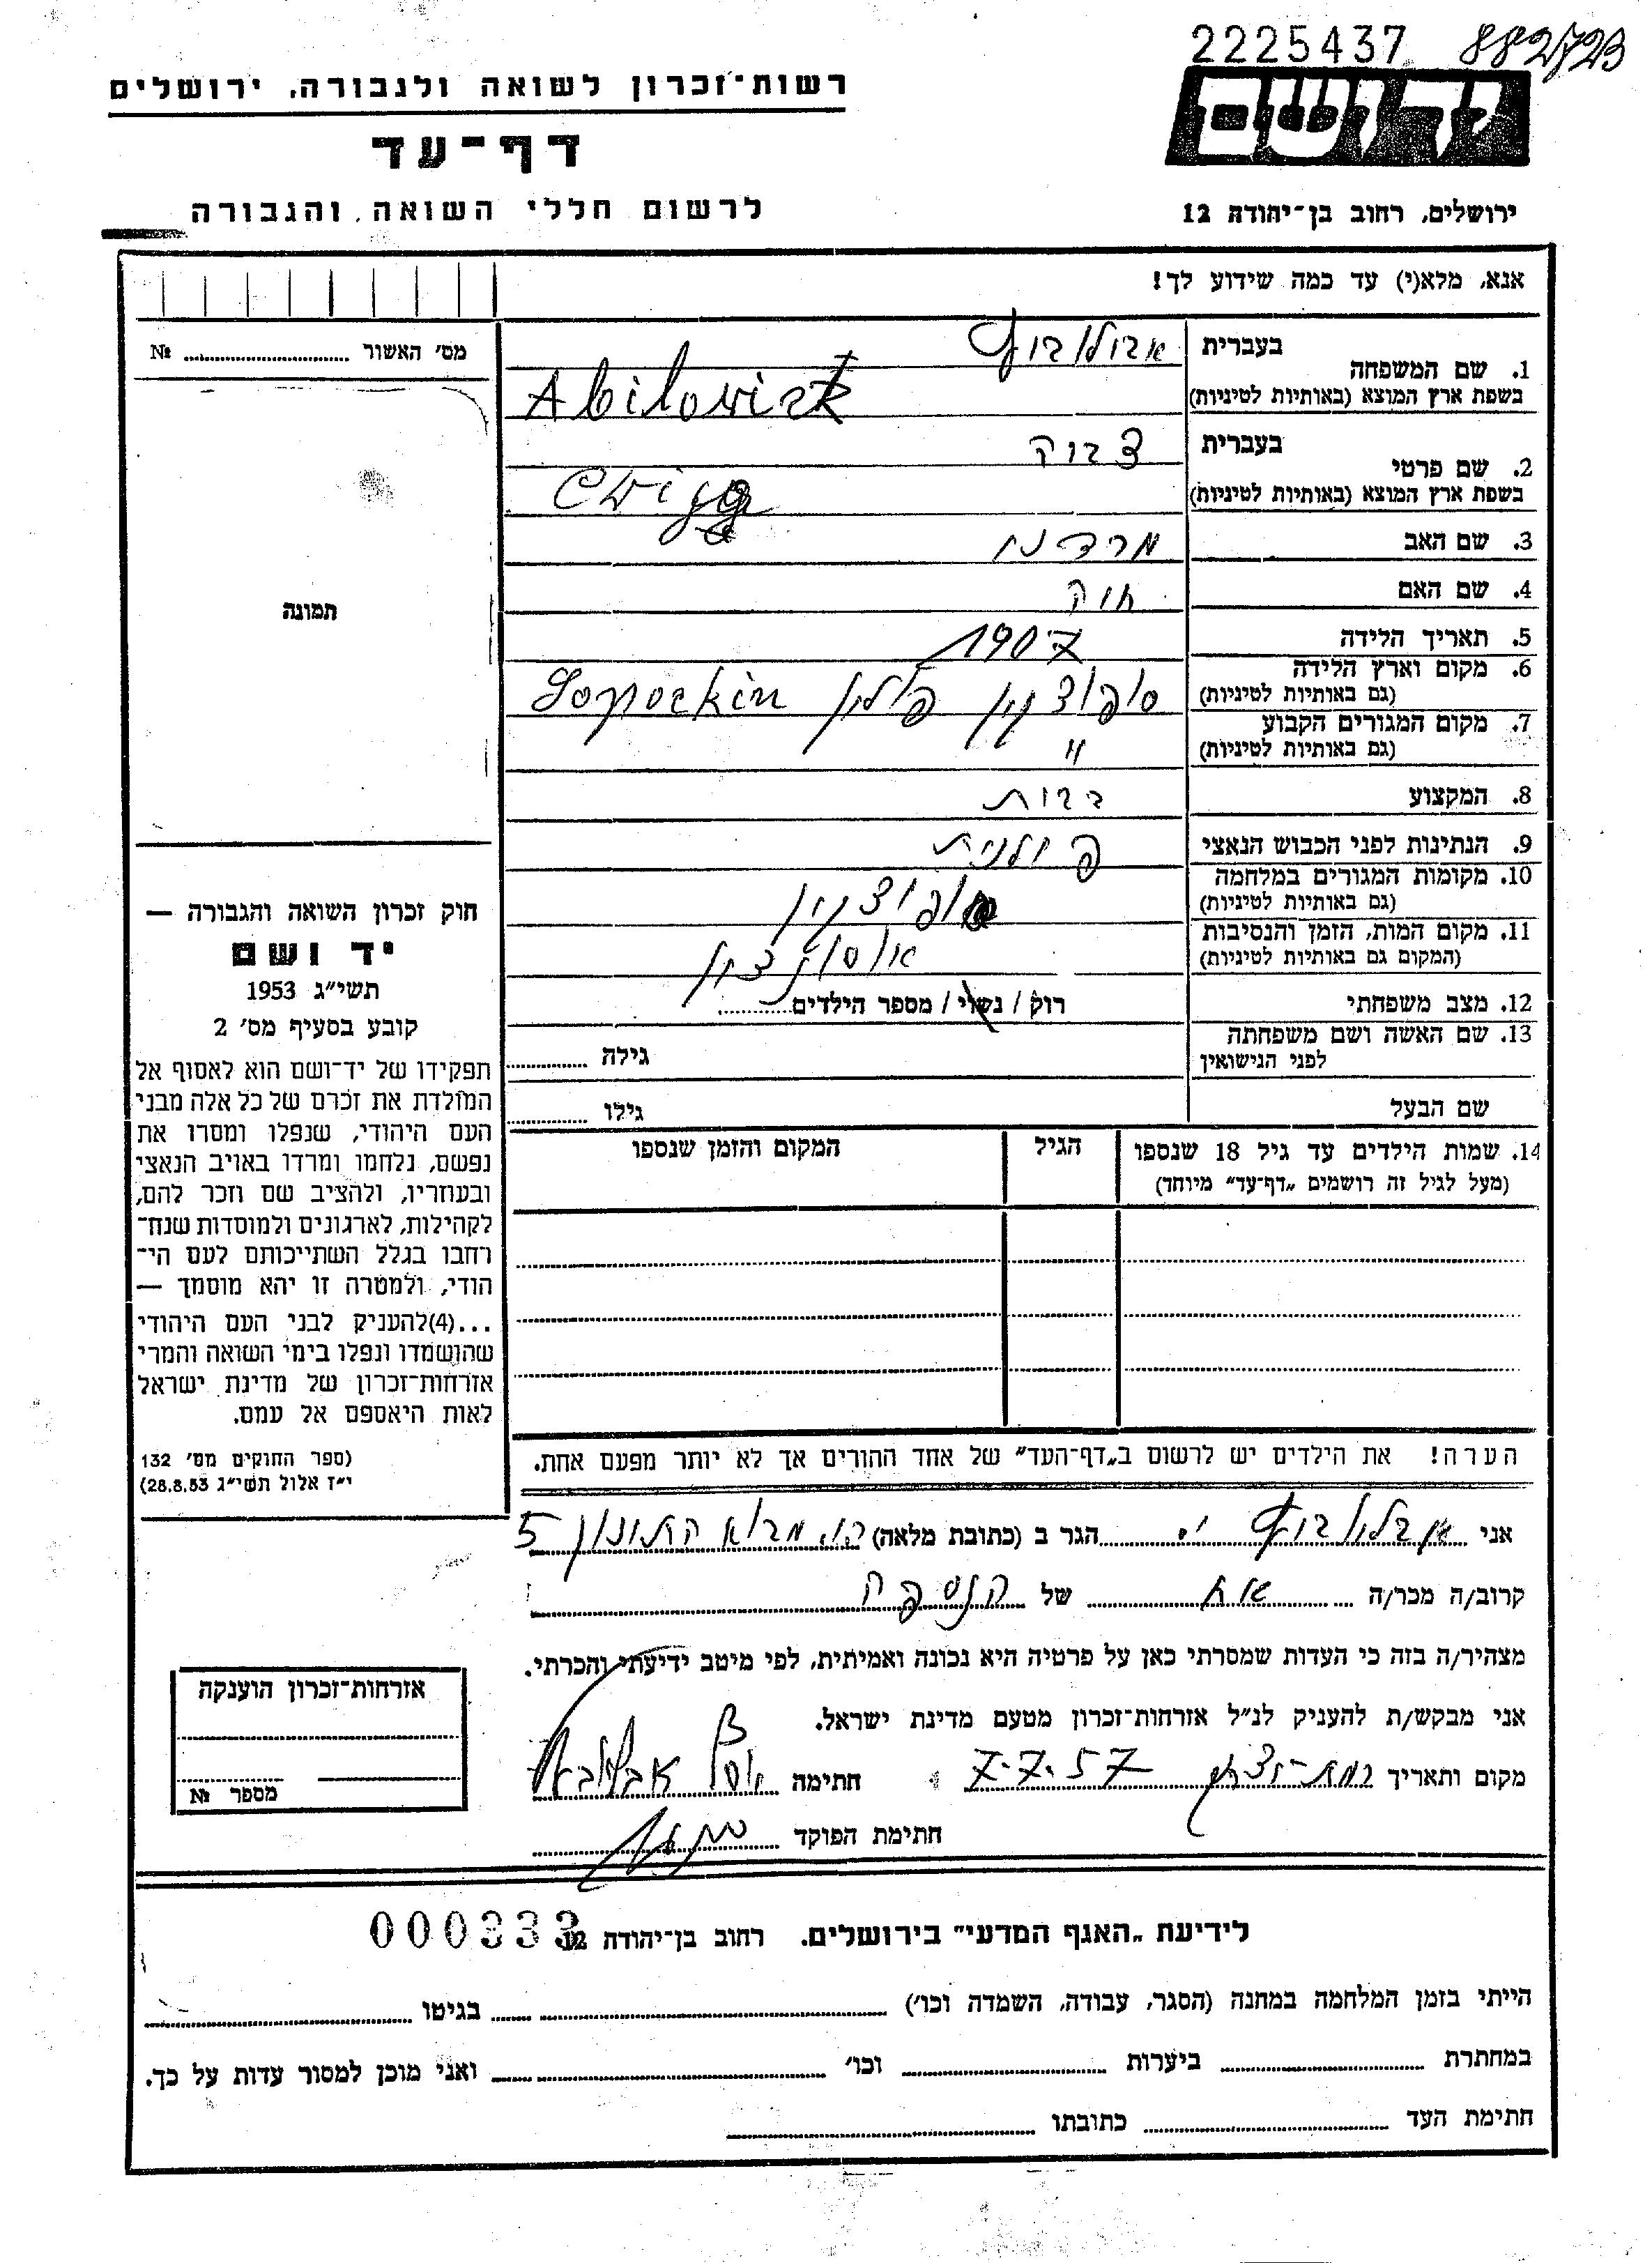 2225437 882723
רשות־זכרון לשואה ולגבורה, ירושלים
דף־עד
לרשום חללי השואה והגבורה
יד ושם
ירושלים, רחוב בן־יהודה 12
אנא, מלא(י) עד כמה שידוע לך!
מס׳ האשור № 
1. שם המשפחה
בעברית
בשפת ארץ המוצא (באותיות לטיניות)
Abilowicz
2. שם פרטי
בעברית
בשפת ארץ המוצא (באותיות לטיניות)
3. שם האב מרדכי
4. שם האם חיה
5. תאריך הלידה 1907
6. מקום וארץ הלידה
(גם באותיות לטיניות)
סופוצקין פולין Sopockin
7. מקום המגורים הקבוע
(גם באותיות לטיניות)
"
8. המקצוע
9. הנתינות לפני הכבוש הנאצי פולנית
10. מקומות המגורים במלחמה
(גם באותיות לטיניות)
סופוצקין
11. מקום המות, הזמן והנסיבות
(המקום גם באותיות לטיניות)
12. מצב משפחתי רוק / נשוי / מספר הילדים
13. שם האשה ושם משפחתה
לפני הנישואין
גילה
שם הבעל גילו
14. שמות הילדים עד גיל 18 שנספו
(מעל לגיל זה רושמים „דף־עד” מיוחד)
הגיל
המקום והזמן שנספו
הערה! את הילדים יש לרשום ב„דף־העד” של אחד ההורים אך לא יותר מפעם אחת.
תמונה
חוק זכרון השואה והגבורה —
יד ושם
תשי״ג 1953
קובע בסעיף מס׳ 2
תפקידו של יד־ושם הוא לאסוף אל
המולדת את זכרם של כל אלה מבני
העם היהודי, שנפלו ומסרו את
נפשם, נלחמו ומרדו באויב הנאצי
ובעוזריו, ולהציב שם וזכר להם,
לקהילות, לארגונים ולמוסדות שנח־
רחבו בגלל השתייכותם לעם הי־
הודי, ולמטרה זו יהא מוסמך —
...(4)להעניק לבני העם היהודי
שהושמדו ונפלו בימי השואה והמרי
אזרחות־זכרון של מדינת ישראל
לאות היאספם אל עמם.
(ספר החוקים מס׳ 132
י״ז אלול תשי״ג 28.8.53)
אני אבילוביץ י. הגר ב (כתובת מלאה) 5
קרוב/ה מכר/ה אח של הנספה
מצהיר/ה בזה כי העדות שמסרתי כאן על פרטיה היא נכונה ואמיתית, לפי מיטב ידיעתי והכרתי.
אני מבקש/ת להעניק לנ״ל אזרחות־זכרון מטעם מדינת ישראל.
מקום ותאריך 7-7-57 חתימה
חתימת הפוקד
אזרחות־זכרון הוענקה
מספר №
לידיעת „האגף המדעי” בירושלים. רחוב בן־יהודה 12 000333
הייתי בזמן המלחמה במחנה (הסגר, עבודה, השמדה וכו׳) בגיטו
במחתרת ביערות וכו׳ ואני מוכן למסור עדות על כך.
חתימת העד כתובתו